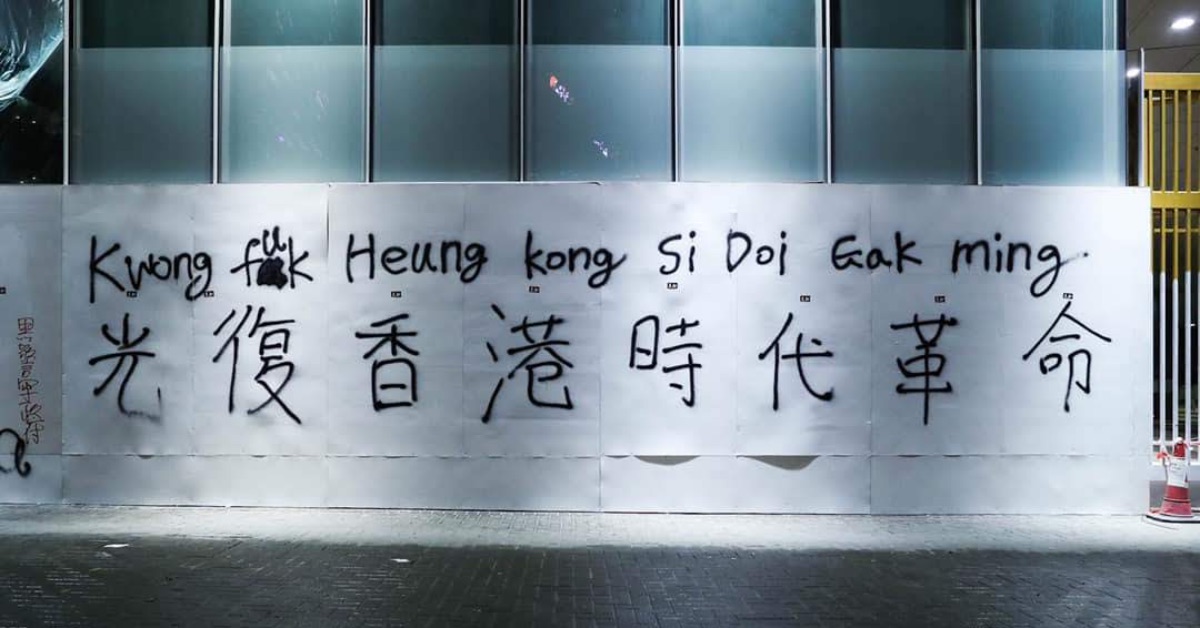 Kwong fuk Heung kong Si Doi Gak ming
光復香港時代革命